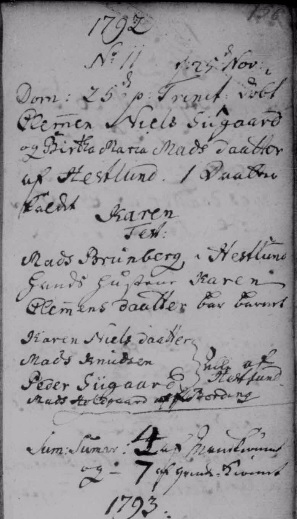 1792
136
No 11 d 25 Nov:
Dom: 25 p: Trinit: döbt
Clemen Niels Siigaard
og Birthe Maria Mads daatter
af Hestlund. 1 Daatter
kaldt
Karen
Test:
Mads Brünberg i Hestlund
hands hustrue Karen
Clemens daatter bar barnet
Karen Niels daatter
Mads Knudsen
alle af
Peder Siigaard
Hestlund
Mads af Bording
Sum: Sumar: 4 af Mandkiönnet
og - 7 af Qvinde-Kiönnet
1793